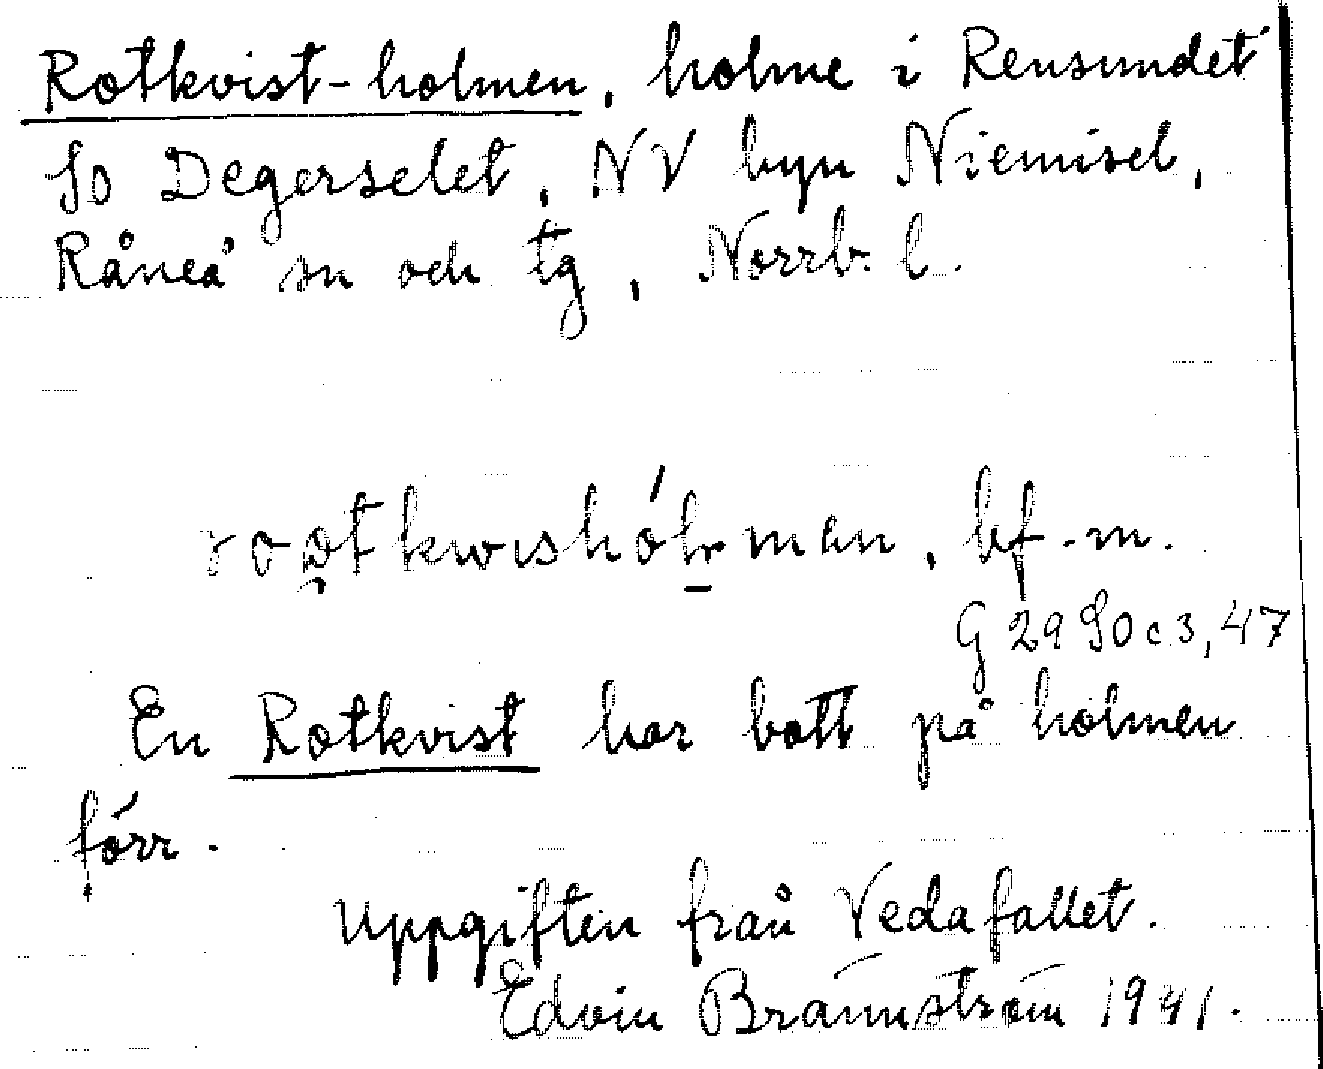 Rotkvist-holmen, holme i Rensundet
SO Degerselet, NV byn Niemisel,
Råneå sn och tg, Norrb. l.
bf. m.
G 29 SO c 3, 47
En Rotkvist har bott på holmen
förr.
Uppgiften från Vedafallet.
Edvin Brännström 1941.